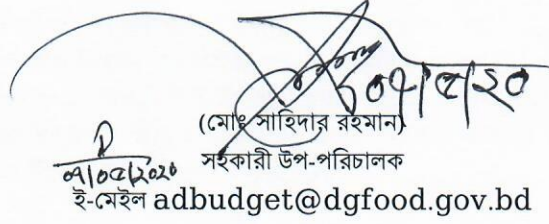 ০৭/৫/২০
(মোঃ সাহিদার রহমান)
সহকারী উপ-পরিচালক
০৭/০৫/২০২০
ই-মেইল adbudget@dgfood.gov.bd